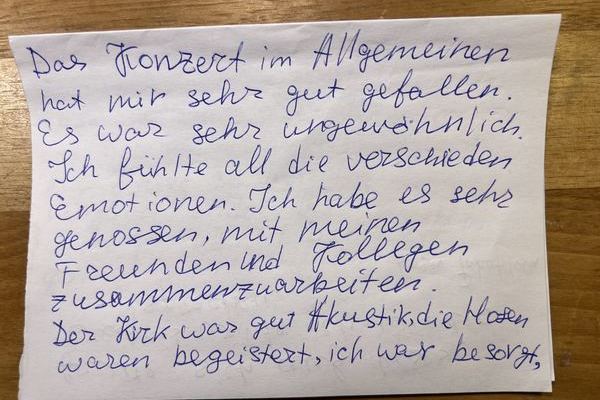 Das Konzert im Allgemeinen
hat mir sehr gut gefallen.
Es war sehr ungewöhnlich.
Ich fühlte all die verschieden
Emotionen. Ich habe es sehr
genossen, mit meinen
Freunden und Kollegen
zusammenzuarbeiten.
Der Kirk war gut Akustik, die Mosen
waren begeistert, ich war besorgt,